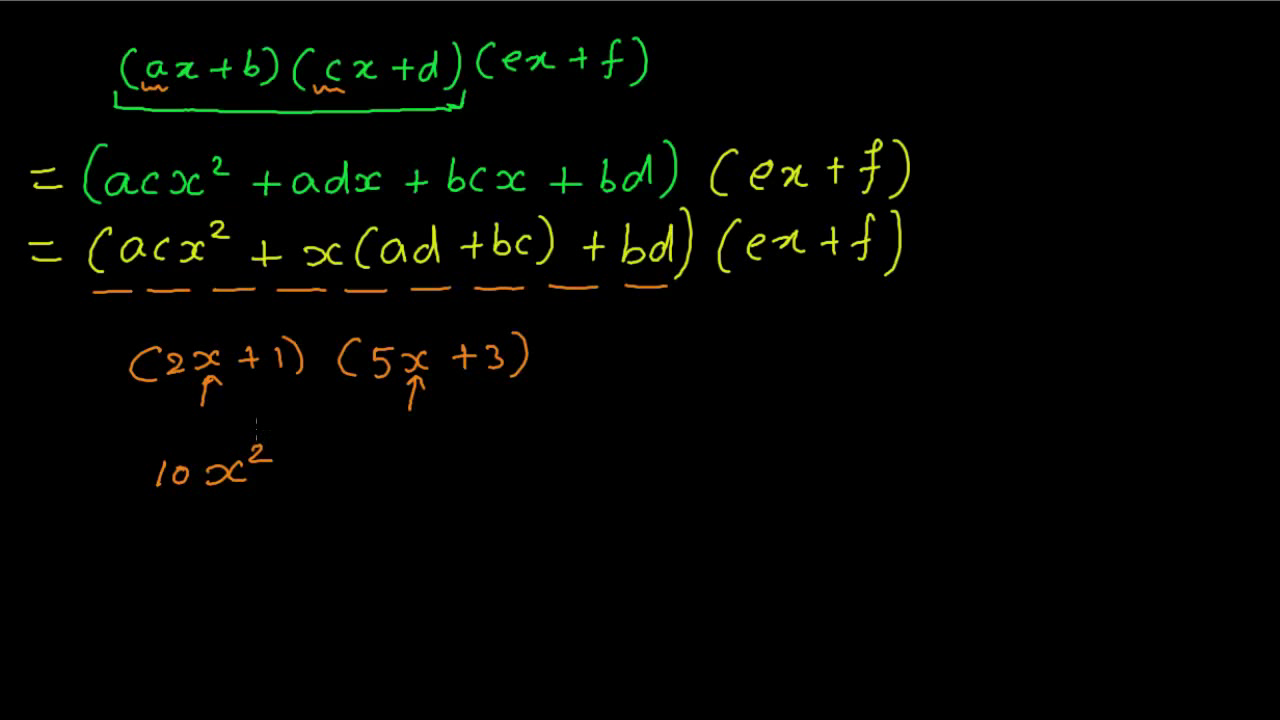 (ax+b)(cx+d)(ex+f)
= (acx² + adx + bcx + bd) (ex+f)
= (acx² + x(ad+bc) + bd) (ex+f)
(2x+1) (5x+3)
10x²